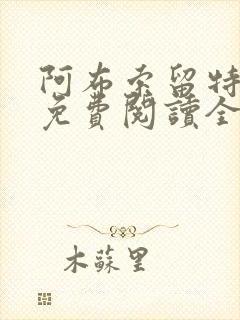 阿布索留特
免費閱讀全
木蘇里